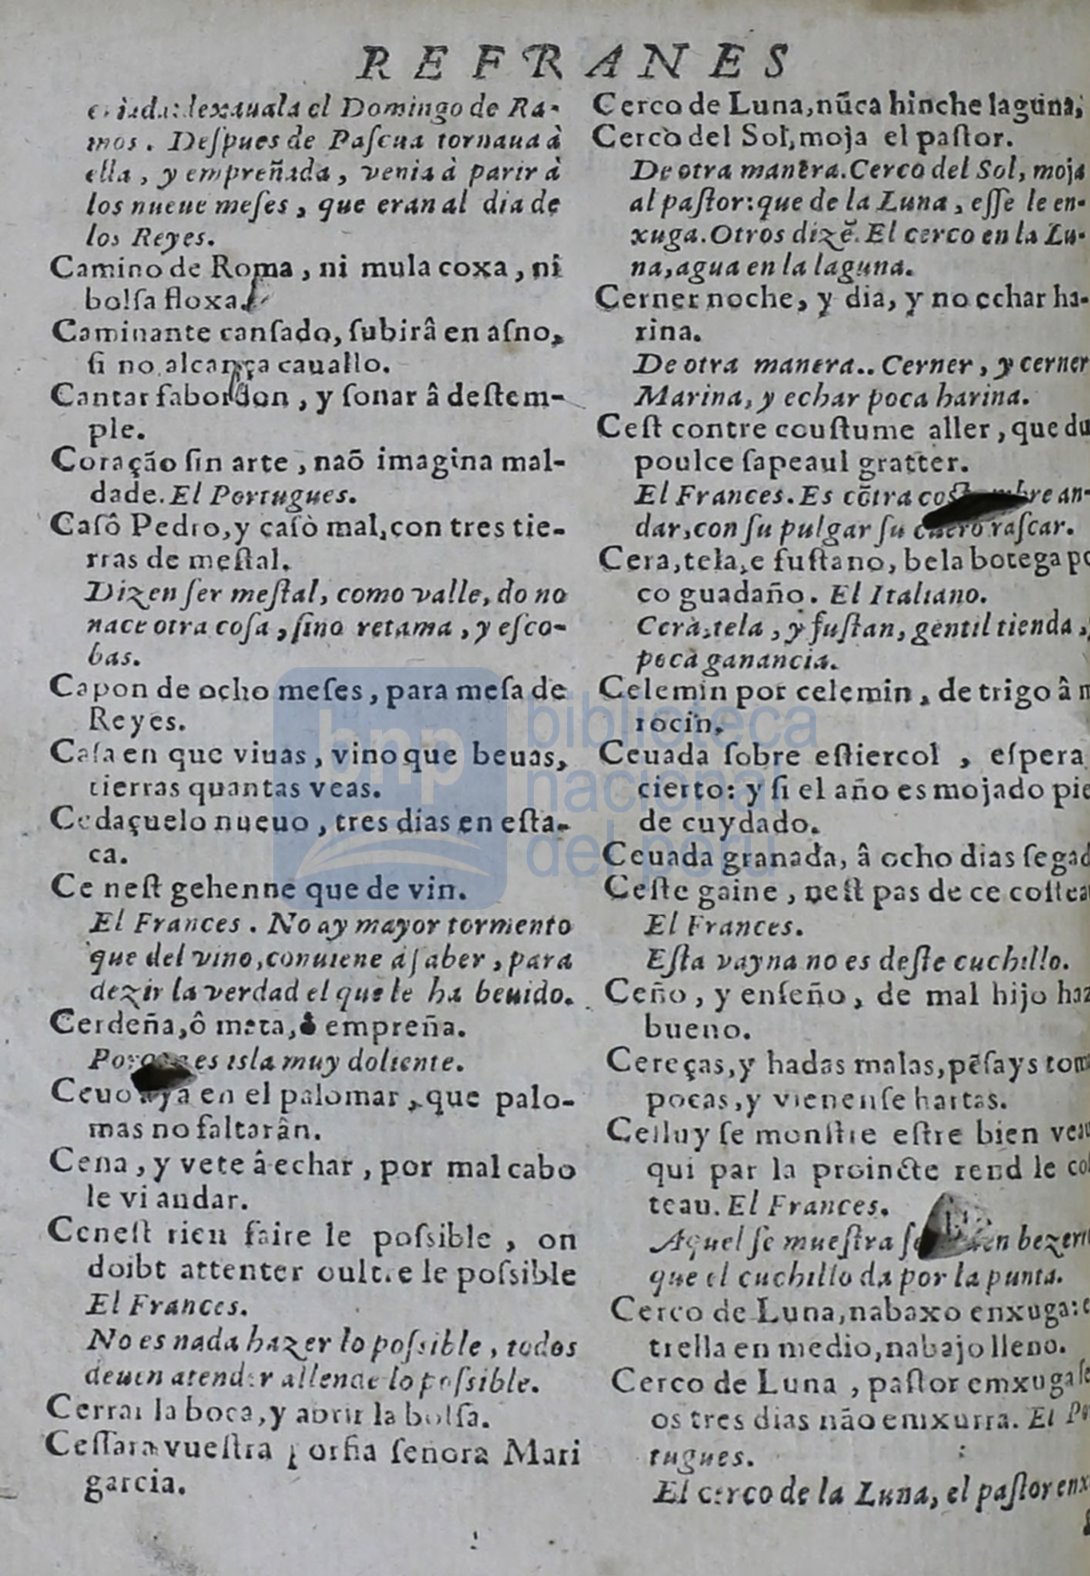 REFRANES
dexauala el Domingo de Ra-
mos. Deſpues de Paſcua tornaua à
ella, y empreñada, venia à parir à
los nueue meſes, que eran al dia de
los Reyes.
Camino de Roma, ni mula coxa, ni
bolſa floxa.
Caminante canſado, ſubirâ en aſno,
ſi no alcança cauallo.
Cantar fabordon, y ſonar â deſtem-
ple.
Coração ſin arte, naõ imagina mal-
dade. El Portugues.
Caſô Pedro, y caſò mal, con tres tie-
rras de meſtal.
Dizen ſer meſtal, como valle, do no
nace otra coſa, ſino retama, y eſco-
bas.
Capon de ocho meſes, para meſa de
Reyes.
Caſa en que viuas, vino que beuas,
tierras quantas veas.
Cedaçuelo nueuo, tres dias en eſta-
ca.
Ce neſt gehenne que de vin.
El Frances. No ay mayor tormento
que del vino, conuiene á ſaber, para
dezir la verdad el que le ha beuido.
Cerdeña, ô mata, ô empreña.
es isla muy doliente.
en el palomar, que palo-
mas no faltarân.
Cena, y vete â echar, por mal cabo
le vi andar.
Ceneſt rien faire le poſsible, on
doibt attenter oultre le poſsible
El Frances.
No es nada hazer lo poſsible, todos
deuen atender allende lo poſsible.
Cerrar la boca, y abrir la bolſa.
Ceſſara vueſtra porfia ſeñora Mari
garcia.
Cerco de Luna, nũca hinche laguna,
Cerco del Sol, moja el paſtor.
De otra manera. Cerco del Sol, moja
al paſtor: que de la Luna, eſſe le en-
xuga. Otros dizẽ. El cerco en la Lu-
na, agua en la laguna.
Cerner noche, y dia, y no echar ha-
rina.
De otra manera.. Cerner, y cerner
Marina, y echar poca harina.
Ceſt contre couſtume aller, que du
poulce ſapeaul gratter.
El Frances. Es cõtra coſtumbre an-
dar, con ſu pulgar ſu cuero raſcar.
Cera, tela, e fuſtano, bela botega po
co guadaño. El Italiano.
Cera, tela, y fuſtan, gentil tienda,
poca ganancia.
Celemin por celemin, de trigo â
rocin.
Ceuada ſobre eſtiercol, eſpera
cierto: y ſi el año es mojado pie
de cuydado.
Ceuada granada, â ocho dias ſegad
Ceſte gaine, neſt pas de ce coſtea
El Frances.
Eſta vayna no es deſte cuchillo.
Ceño, y enſeño, de mal hijo haz
bueno.
Cereças, y hadas malas, pẽſays tom
pocas, y vienenſe hartas.
Celluy ſe monſtre eſtre bien veau
qui par la proincte rend le coſ
teau. El Frances.
Aquel ſe mueſtra bezerr
que el cuchillo da por la punta.
Cerco de Luna, nabaxo enxuga: e
trella en medio, nabajo lleno.
Cerco de Luna, paſtor emxuga ſe
os tres dias não emxurra. El Por
tugues.
El cerco de la Luna, el paſtor enx
bnp biblioteca
nacional
del perú